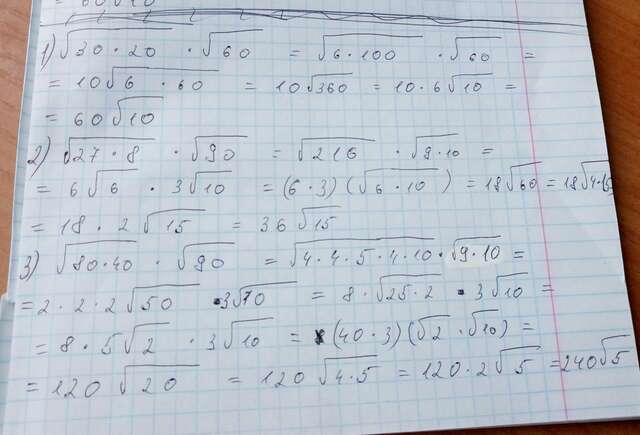 60√10
1) √30·20 · √60 = √6·100 · √60 =
= 10√6 · 60 = 10√360 = 10·6√10 =
= 60√10
2) √27·8 · √90 = √216 · √9·10 =
= 6√6 · 3√10 = (6·3)(√6·10) = 18√60 = 18√4·15
= 18·2√15 = 36√15
3) √80·40 · √90 = √4·4·5·4·10 · √9·10 =
= 2·2·2√50 · 3√10 = 8·√25·2 · 3√10 =
= 8·5√2 · 3√10 = (40·3)(√2·√10) =
= 120√20 = 120√4·5 = 120·2√5 = 240√5